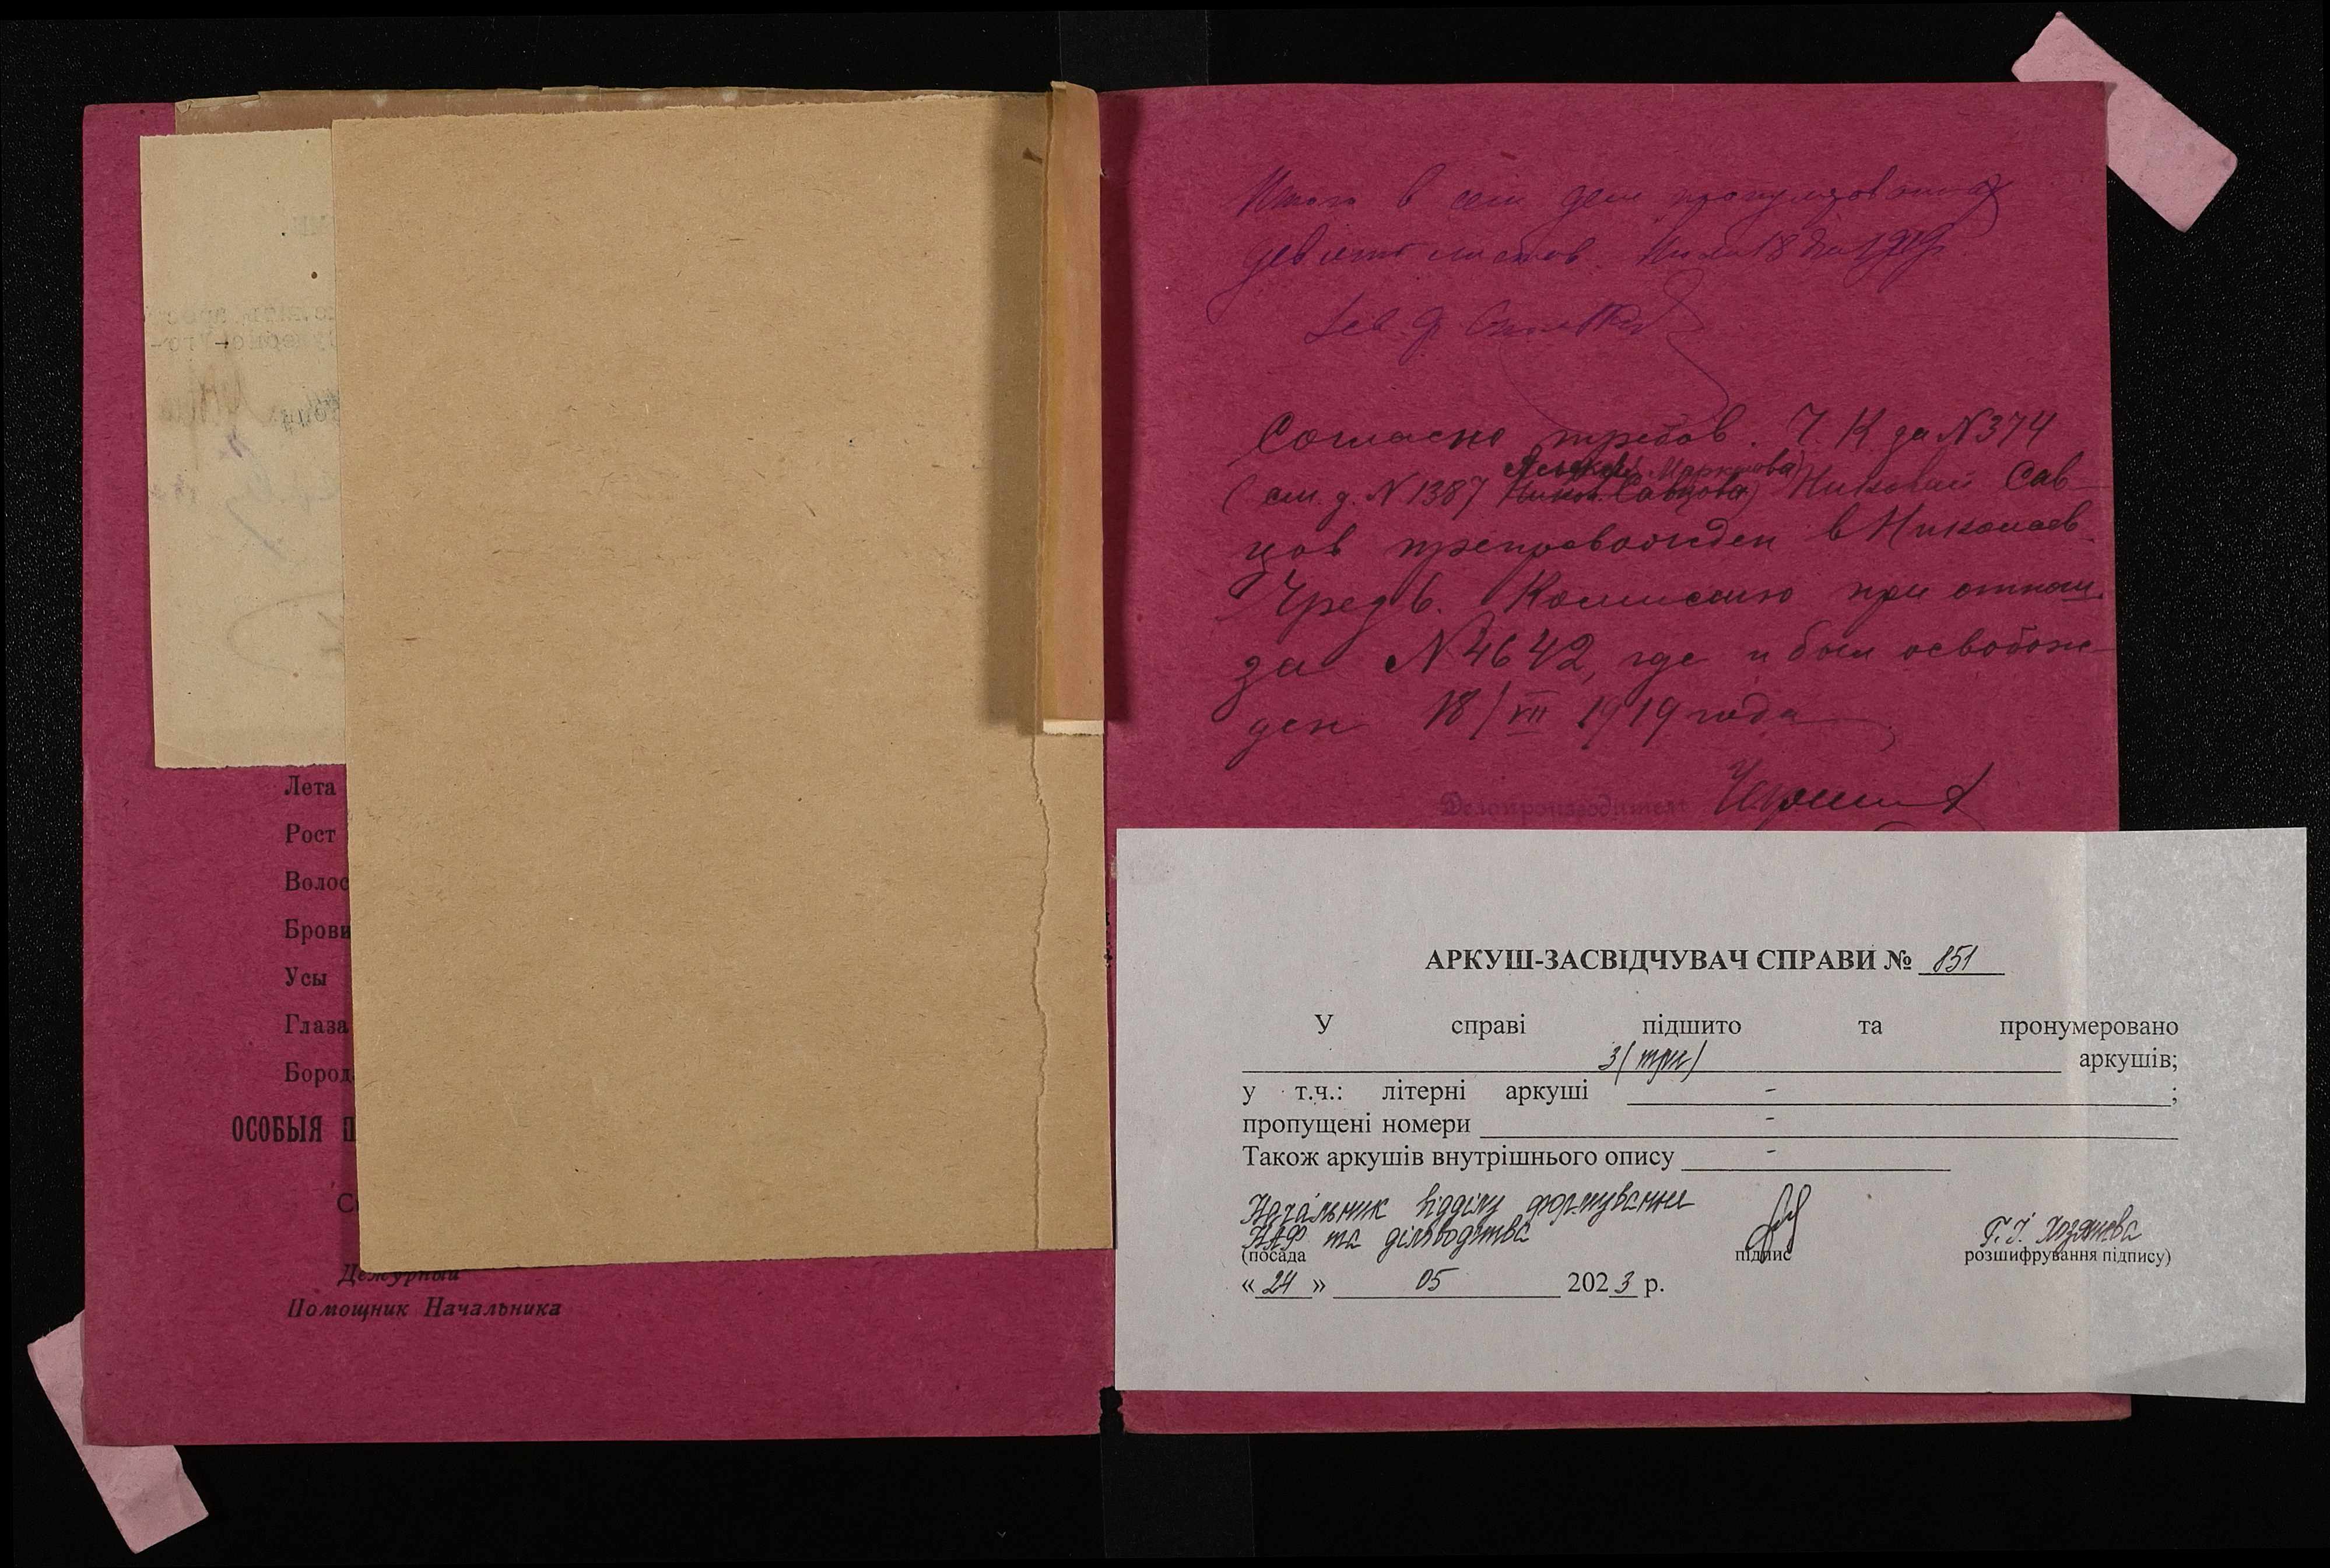 Лета
Рост
Волос
Брови
Усы
Глаза
Бород
ОСОБЫЯ П
Дежурный
Помощник Начальника
Итого в сем деле пронумерованных
девять листов.
Согласно требов. Ч. К за N 374
Маркелова)
(см. д. N 1387 Никол. Савцова) Николай Сав-
цов препровожден в Николаев.
Чрезв. Комиссию при отнош.
за N 4642, где и был освобож-
ден 18/VII 1919 года
Делопроизводитель
АРКУШ-ЗАСВІДЧУВАЧ СПРАВИ № 851
У справі підшито та пронумеровано
3 (три) аркушів;
у т.ч.: літерні аркуші - ;
пропущені номери -
Також аркушів внутрішнього опису -
Начальник відділу формування
НАФ та діловодства
(посада підпис розшифрування підпису)
« 24 » 05 2023 р.